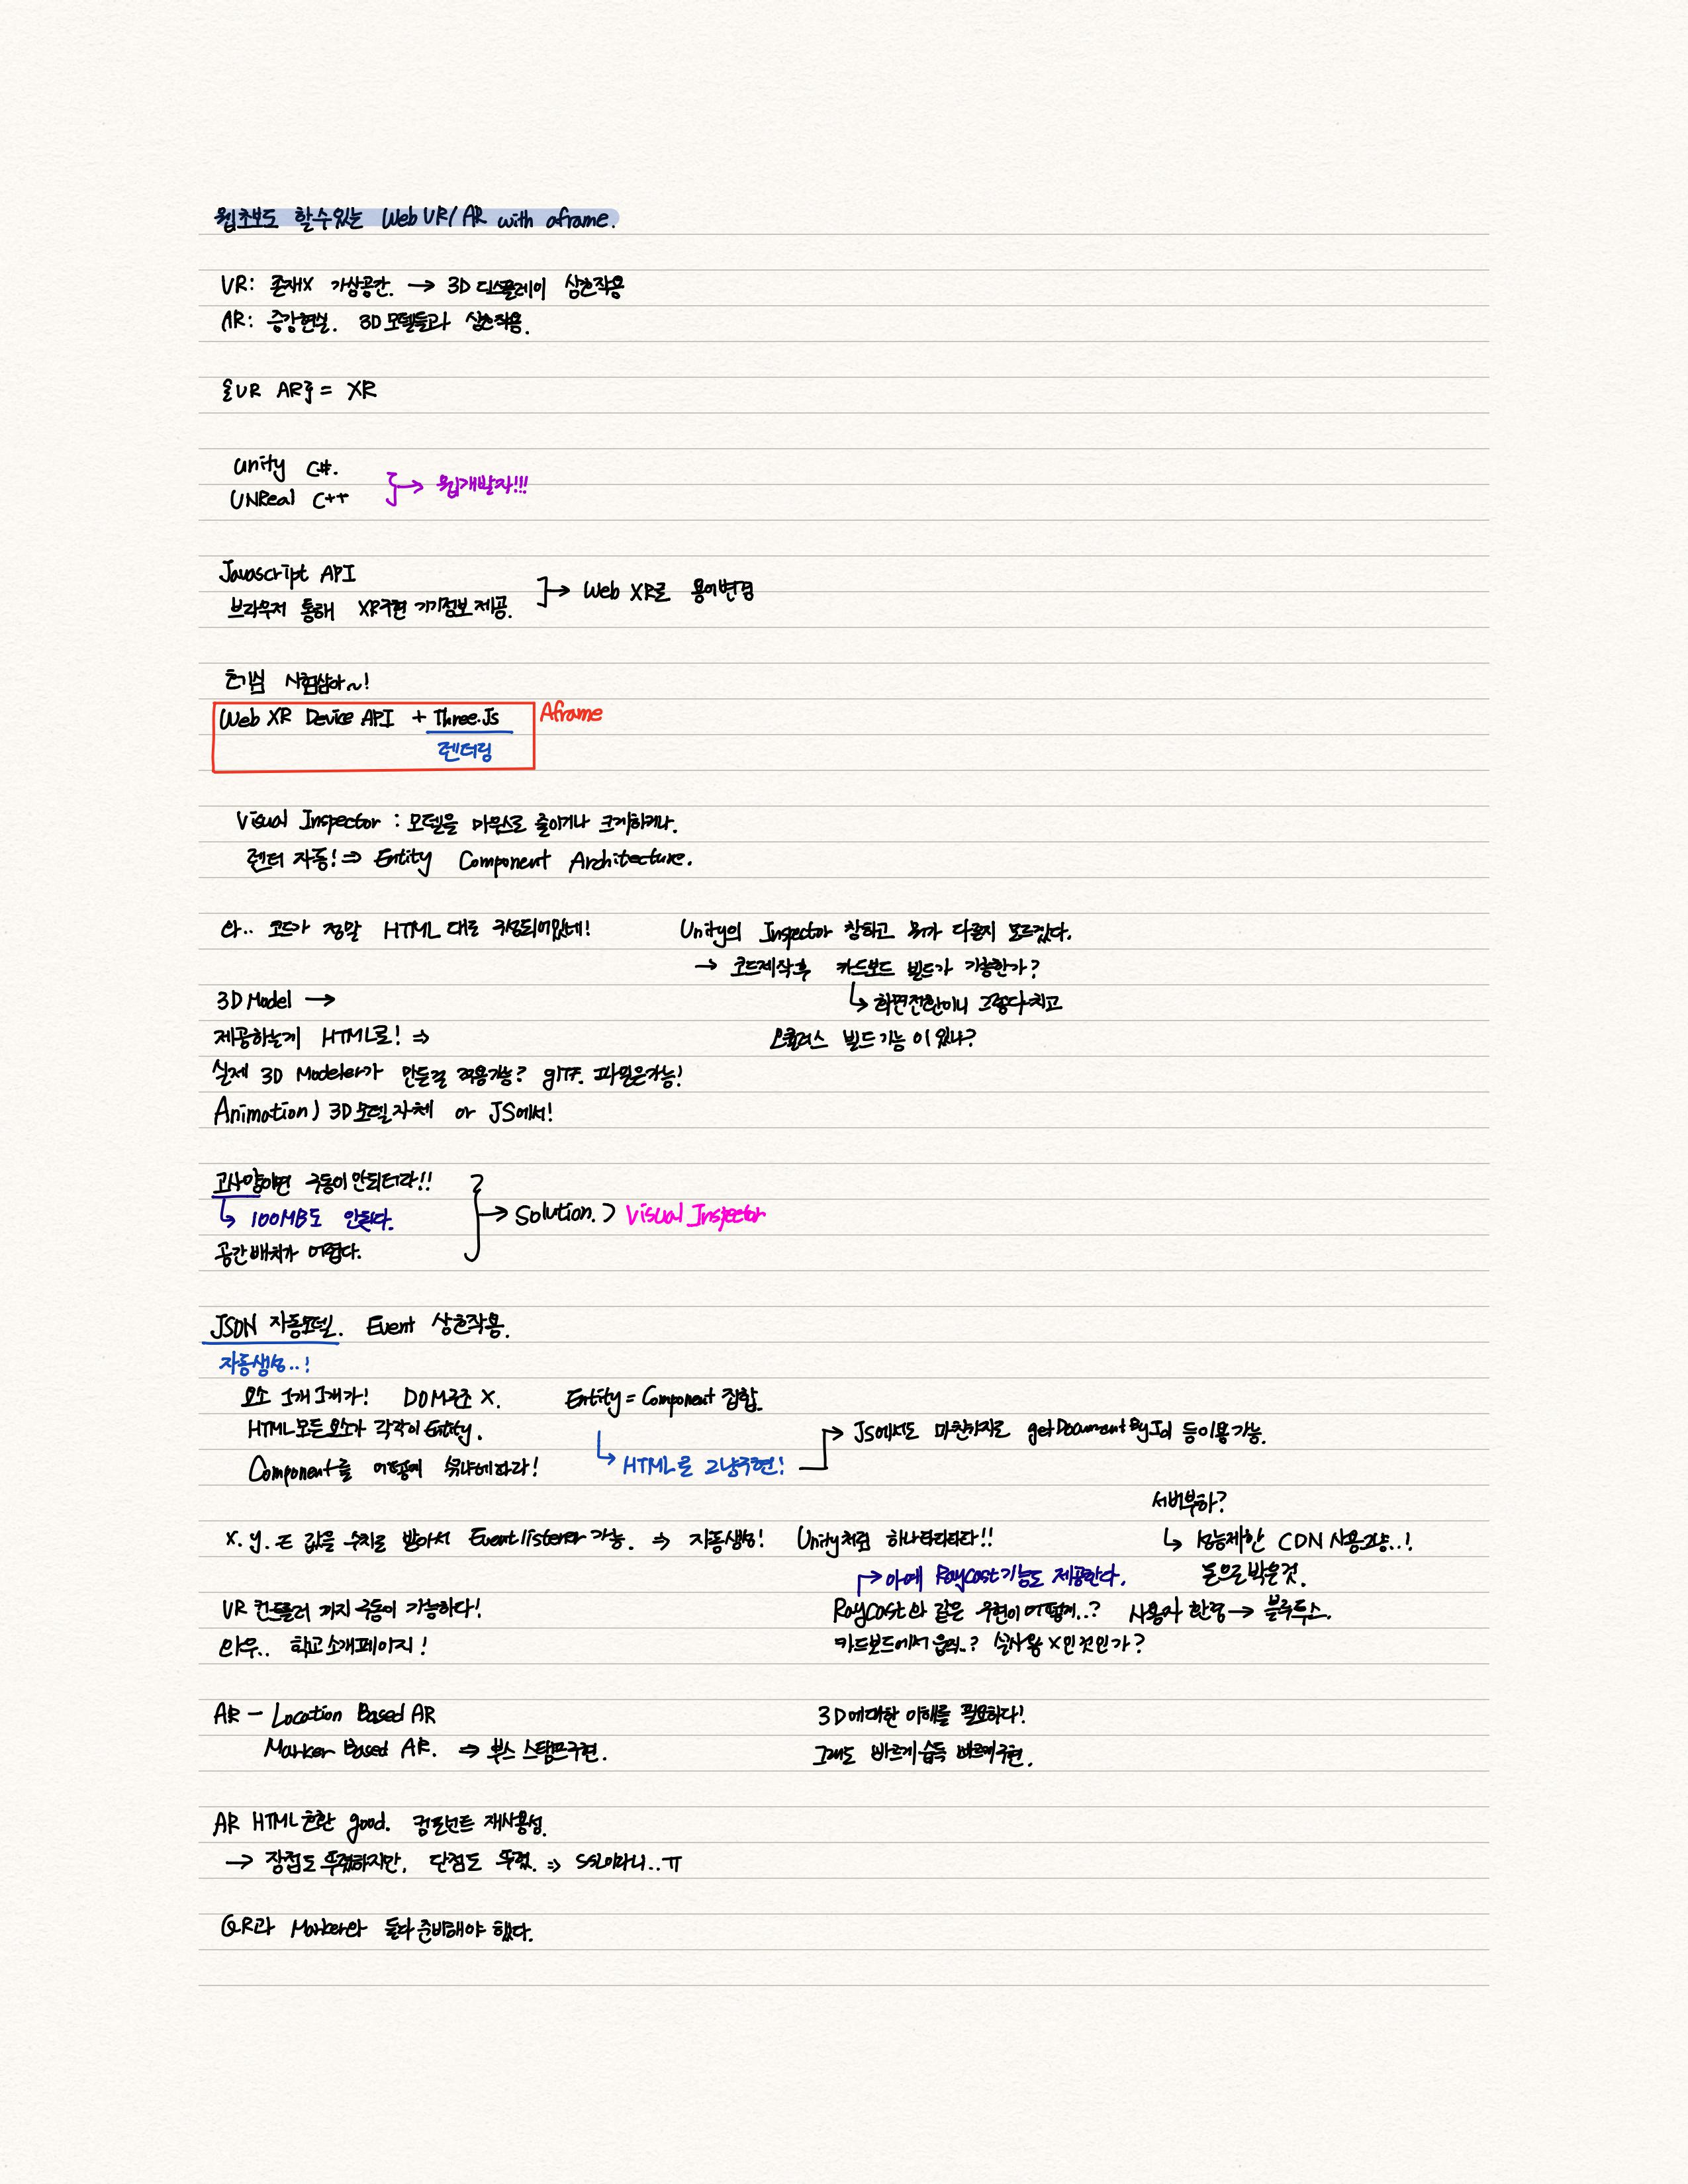 웹초보도 할수있는 Web VR/AR with aframe.
VR: 존재X 가상공간. → 3D 디스플레이 상호작용
AR: 증강현실. 3D 모델들과 상호작용.
{VR AR} = XR
Unity C#.
UNReal C++
→ 웹개발자!!!
Javascript API
브라우저 통해 XR구현 기기정보 제공.
→ Web XR로 용어변경
시험삼아~!
Web XR Device API + Three.Js
Aframe
렌더링
Visual Inspector : 모델을 마우스로 줄이거나 크게하거나.
렌더 자동! ⇒ Entity Component Architecture.
와.. 코드가 정말 HTML 대로 구성되어있네!
3D Model →
제공하는게 HTML로! ⇒
Unity의 Inspector 창하고 뭐가 다른지 모르겠다.
→ 코드제작후 카드보드 빌드가 가능한가?
↳ 화면전환이니 그렇다치고
오큘러스 빌드기능 이 있나?
실제 3D Modeler가 만든걸 적용가능? glTF. 파일은가능!
Animation) 3D모델자체 or JS에서!
고사양이면 구동이 안되더라!!
↳ 100MB도 안된다.
공간배치가 어렵다.
→ Solution.) Visual Inspector
JSON 자동모델. Event 상호작용.
자동생성..!
요소 1개1개가! DOM구조 X. Entity = Component 집합.
HTML모든요소가 각각이 Entity.
Component를 어떻게 에따라!
↳ HTML로 그냥구현!
→ JS에서도 마찬가지로 getDocumentById 등이용가능.
x. y. z 값을 수치로 받아서 Eventlistener 가능. ⇒ 자동생성! Unity처럼 하나타타타다!!
서버부하?
↳ 성능제한 CDN 사용그냥..!
돈으로 박은것.
VR 컨트롤러 까지 구동이 가능하다!
와우.. 학교소개페이지!
→ 아예 Raycast기능도 제공한다.
Raycast와 같은 구현이어떻게..? 사용자 한명 → 블루투스.
카드보드에서 움직..? 실사용 X인것인가?
AR – Location Based AR
Marker Based AR. ⇒ 부스 스탬프구현.
3D에대한 이해를 필요하다!
그래도 빠르게습득 빠르게구현.
AR HTML호환 good. 컴포넌트 재사용성.
→ 장점도 뚜렷하지만, 단점도 뚜렷. ⇒ SSL이라니..ㅠ
QR과 Marker와 둘다준비해야 했다.